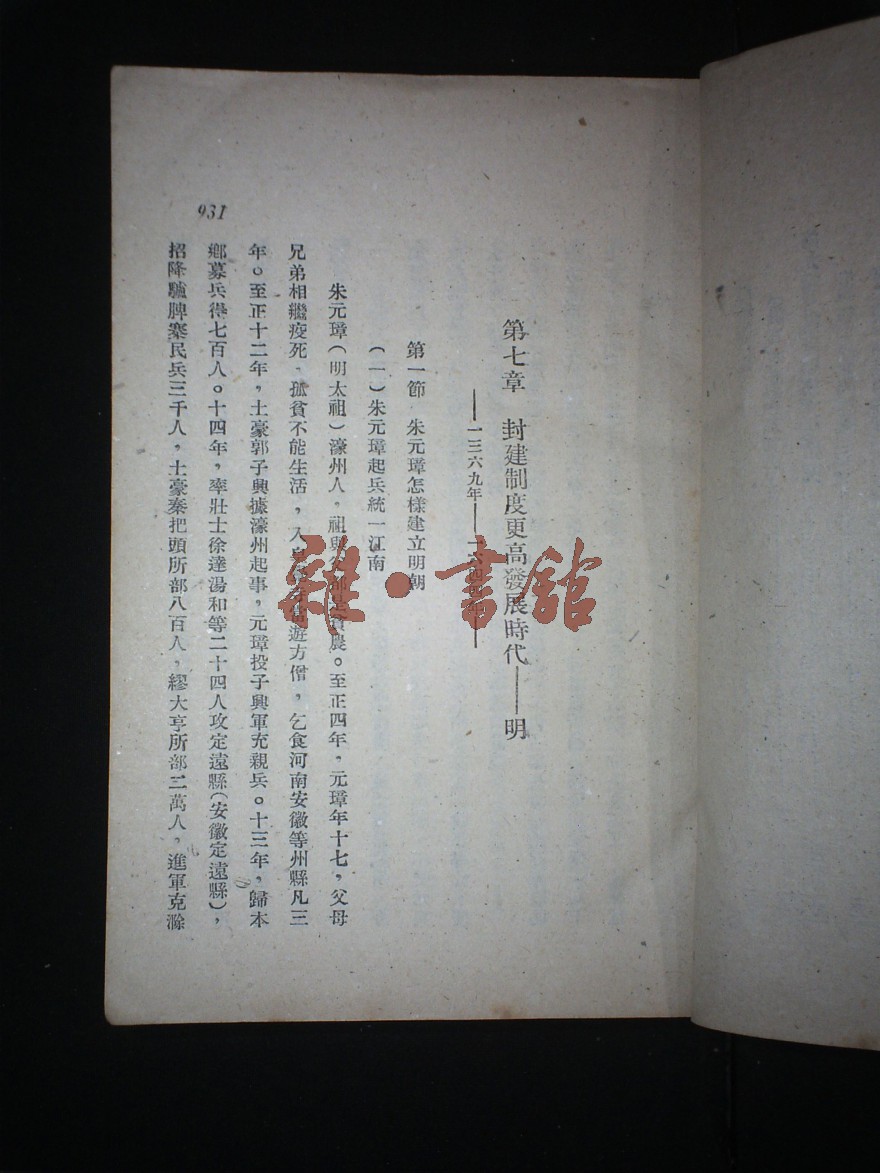 第七章 封建制度更高發展時代——明
——一三六九年——一六四四年——
第一節 朱元璋怎樣建立明朝
(一)朱元璋起兵統一江南
朱元璋(明太祖)濠州人。祖與父都是貧農。至正四年,元璋年十七,父母
兄弟相繼疫死。孤貧不能生活,入皇覺寺當遊方僧,乞食河南安徽等州縣凡三
年。至正十二年,土豪郭子興據濠州起事,元璋投子興軍充親兵。十三年,歸本
鄉募兵得七百人。十四年,率壯士徐達湯和等二十四人攻定遠縣(安徽定遠縣),
招降驢牌寨民兵三千人,土豪秦把頭所部八百人,繆大亨所部二萬人,進軍克滁
931
雜·書館